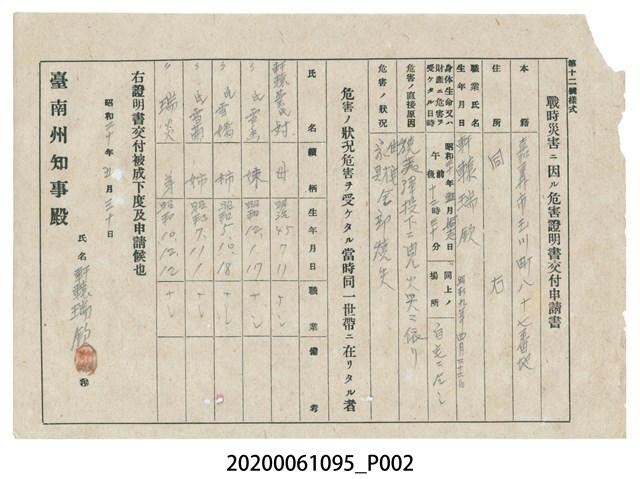 第十二號樣式
戰時災害ニ因ル危害證明書交付申請書
本籍 嘉義市玉川町八十七番地
住所 同右
職業氏名 軒轅瑞欽
生年月日 昭和九年四月二十二日
身体生命又ハ財產ニ危害ヲ受ケタル日時 昭和二十年 月 日 午前後十二時 分
同上ノ場所 自宅
危害ノ直接原因 投下ニ由ル火災ニ依リ
危害ノ狀況 家具全部燒失
危害ノ狀況危害ヲ受ケタル當時同一世帶ニ在リタル者
氏名 續柄 生年月日 職業 備考
母 明治45.7.11 なし
妹 昭和12.1.17 なし
姉 昭和5.10.18 なし
姉 昭和7.11.1 なし
瑞炎 弟 昭和10.12.12 なし
右證明書交付被成下度及申請候也
昭和二十年五月三十日
氏名 軒轅瑞欽 ㊞
臺南州知事殿
20200061095_P002